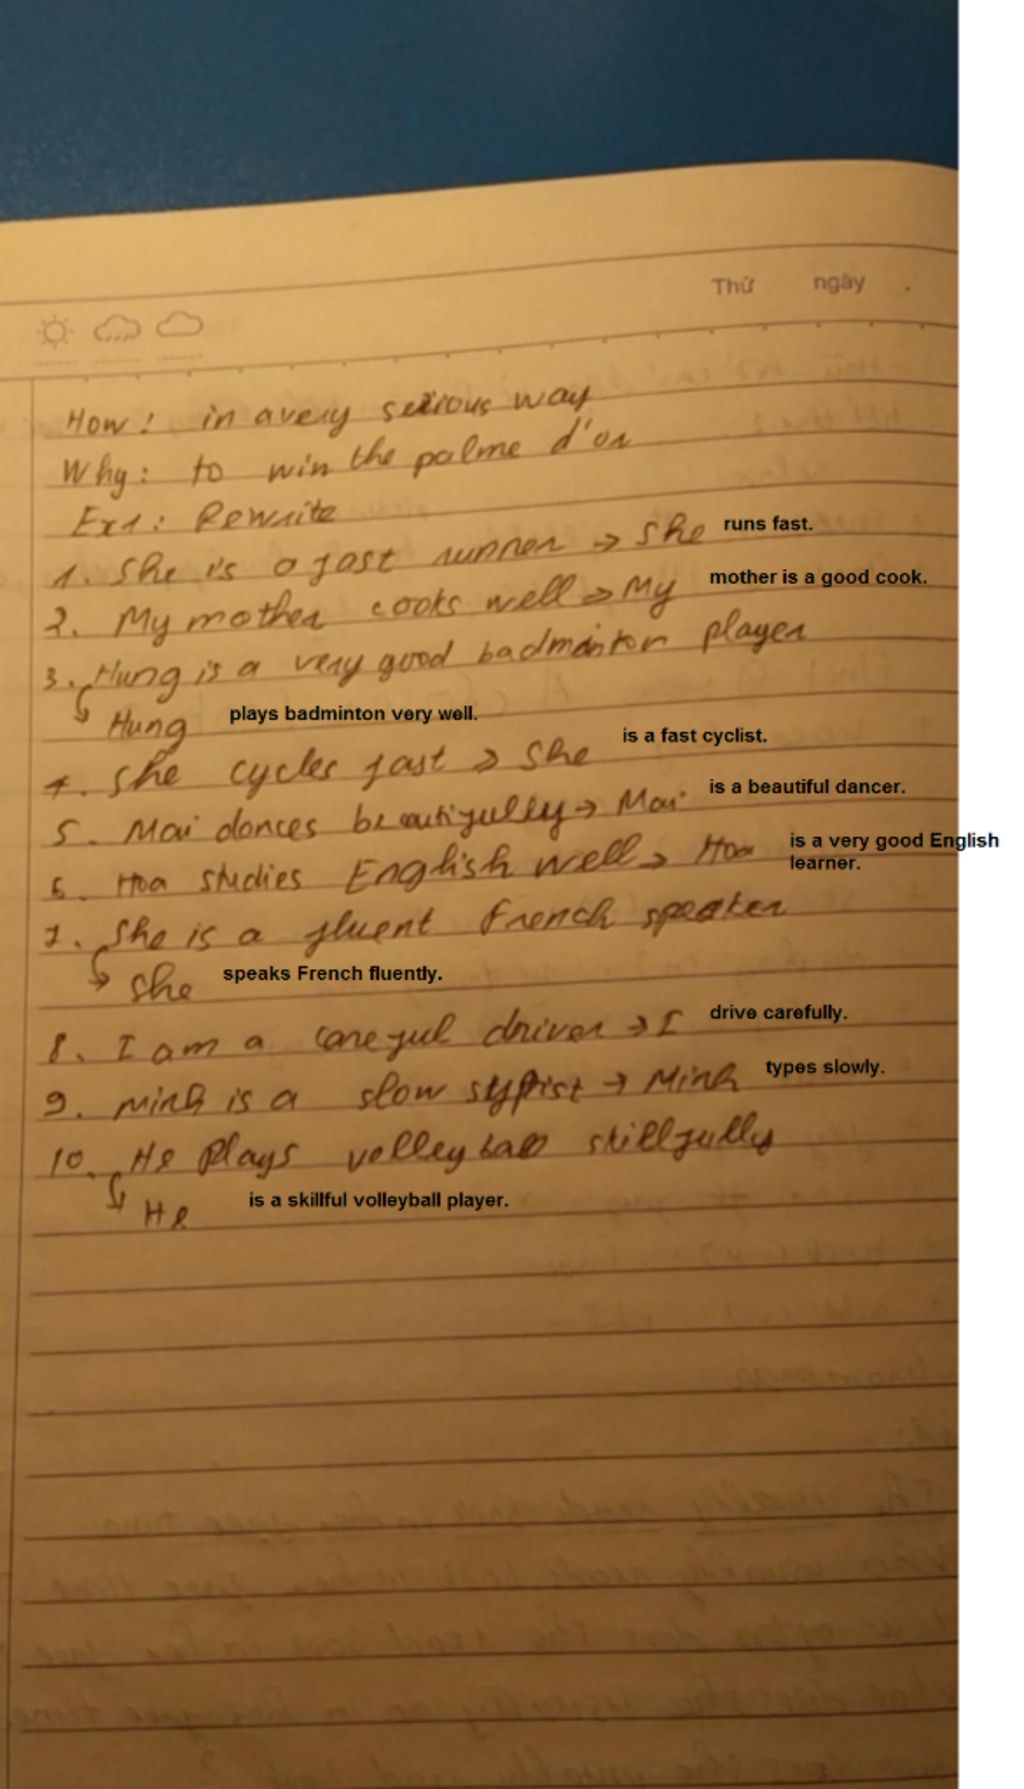 Thứ ngày .
How: in a very serious way
Why: to win the palme d'or
Ex1: Rewrite
1. She is a fast runner → She runs fast.
2. My mother cooks well → My mother is a good cook.
3. Hung is a very good badminton player
↳ Hung plays badminton very well.
4. She cycles fast → She is a fast cyclist.
5. Mai dances beautifully → Mai is a beautiful dancer.
6. Hoa studies English well → Hoa is a very good English
learner.
7. She is a fluent French speaker
↳ She speaks French fluently.
8. I am a careful driver → I drive carefully.
9. Minh is a slow typist → Minh types slowly.
10. He plays volleyball skillfully
↳ He is a skillful volleyball player.